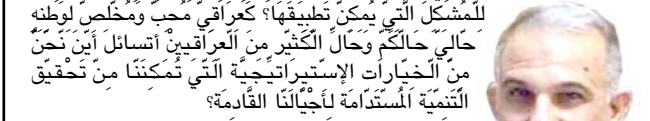 للمُشكَل الَّتيَّ يُمكنَّ تَطبيقَهَا؟ كَعرَاقيَّ مَحبَّ وَمُخلصَّ لوَطنه
حَاليَّ حَالَكَّمَّ وَحَالَّ الَكَثيَّر منَ الَعرَاقَييَنَّ أتسائلَ أيَنَ نَّحَنَّ
منَّ الَّخيَّارَات الإستَيرَاتيَّجيَّة الَّتيَّ تُمَكنَنَا منَّ تَحَقيَّق
الَّتَنميَّة المُستَدَامَة لأجَيَّالنَا القَّادِمَة؟